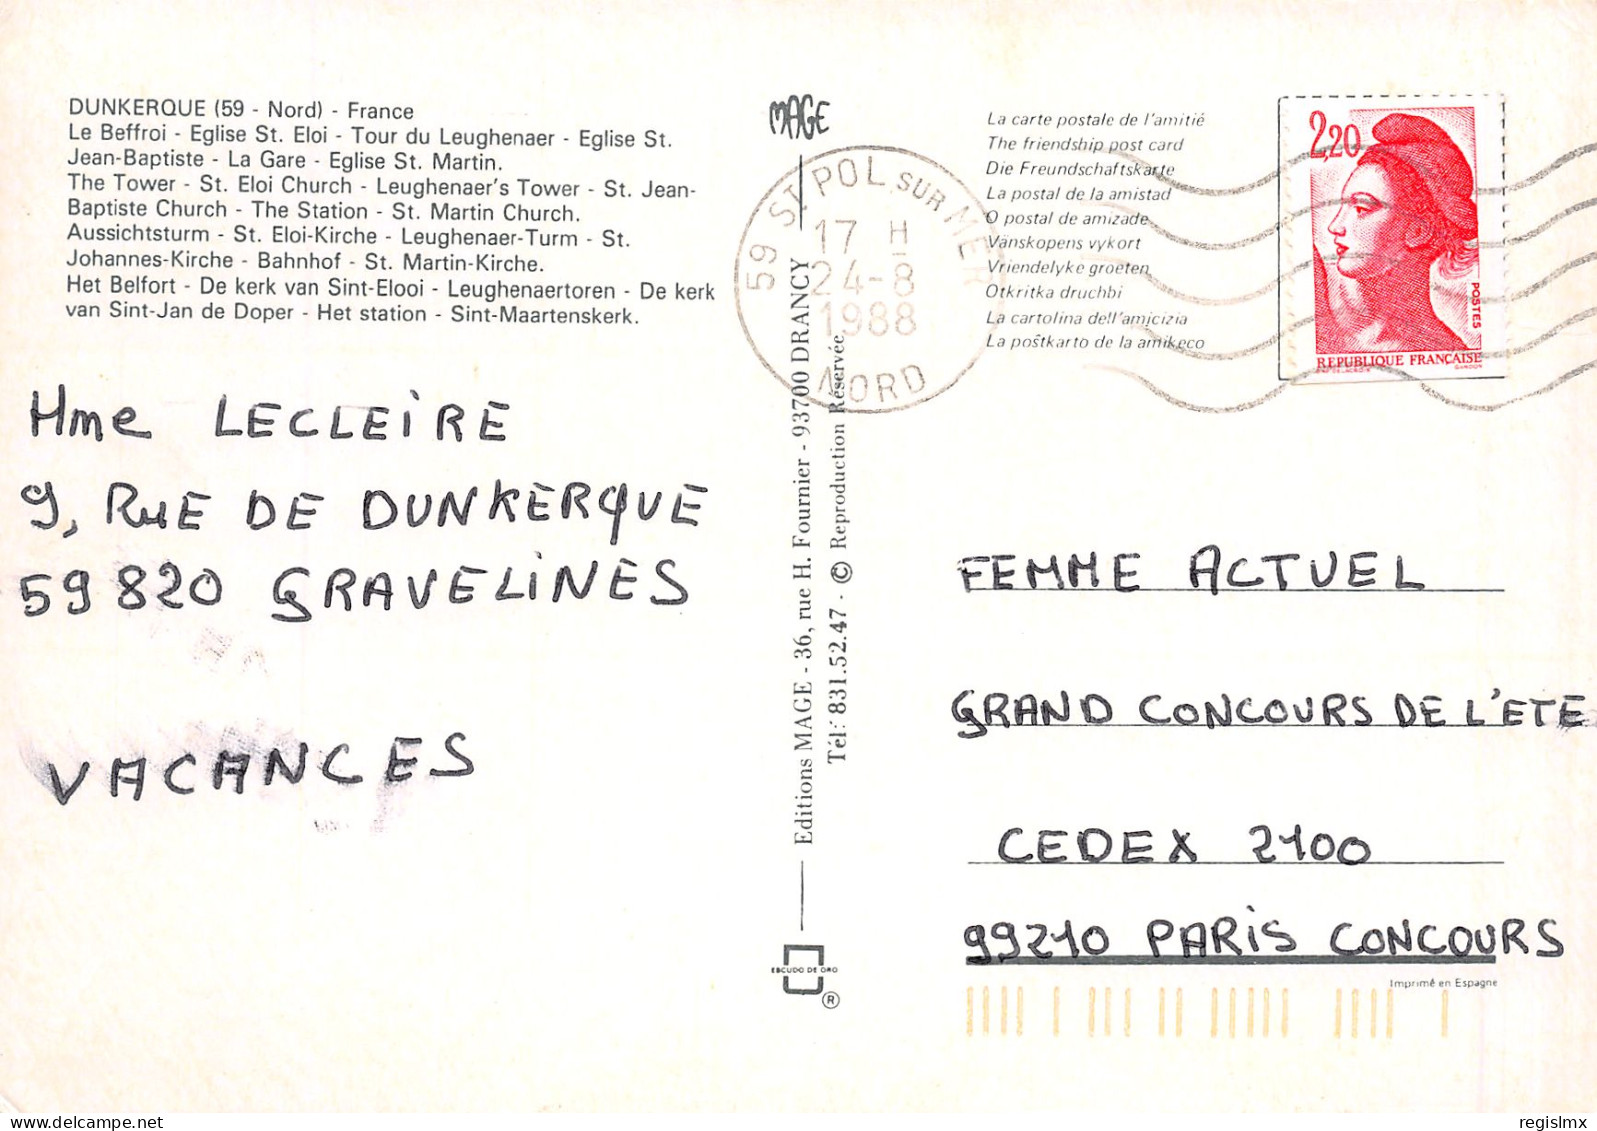 DUNKERQUE (59 - Nord) - France
Le Beffroi - Eglise St. Eloi - Tour du Leughenaer - Eglise St.
Jean-Baptiste - La Gare - Eglise St. Martin.
The Tower - St. Eloi Church - Leughenaer's Tower - St. Jean-
Baptiste Church - The Station - St. Martin Church.
Aussichtsturm - St. Eloi-Kirche - Leughenaer-Turm - St.
Johannes-Kirche - Bahnhof - St. Martin-Kirche.
Het Belfort - De kerk van Sint-Elooi - Leughenaertoren - De kerk
van Sint-Jan de Doper - Het station - Sint-Maartenskerk.
Mme LECLEIRE
9, RUE DE DUNKERQUE
59820 GRAVELINES
VACANCES
MAGE
Editions MAGE - 36, rue H. Fournier - 93700 DRANCY
Tél: 831.52.47 - © Reproduction Réservée
ESCUDO DE ORO
®
59 ST POL SUR MER
17 H
24-8
1988
NORD
La carte postale de l'amitié
The friendship post card
Die Freundschaftskarte
La postal de la amistad
O postal de amizade
Vänskopens vykort
Vriendelyke groeten
Otkritka druchbi
La cartolina dell'amicizia
La poŝtkarto de la amikeco
2,20
POSTES
REPUBLIQUE FRANÇAISE
GANDON
FEMME ACTUEL
GRAND CONCOURS DE L'ETE
CEDEX 2100
99210 PARIS CONCOURS
Imprimé en Espagne
regislmx